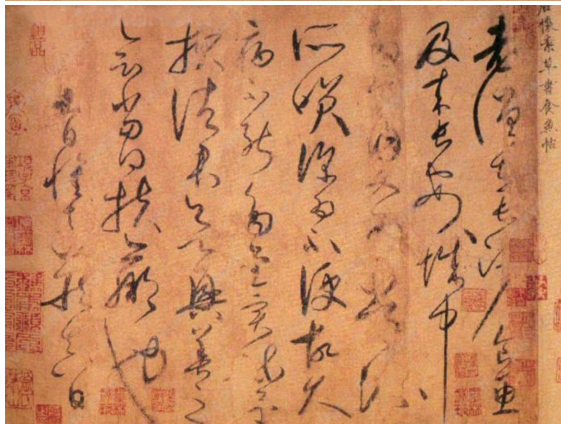 懷素草書食魚帖
老僧在長沙食魚
及來長安城中
多食肉又為常流
所笑深為不便故久
病不能多書實疏還
報諸君欲興善之
會當得扶羸也
九日懷素藏真白